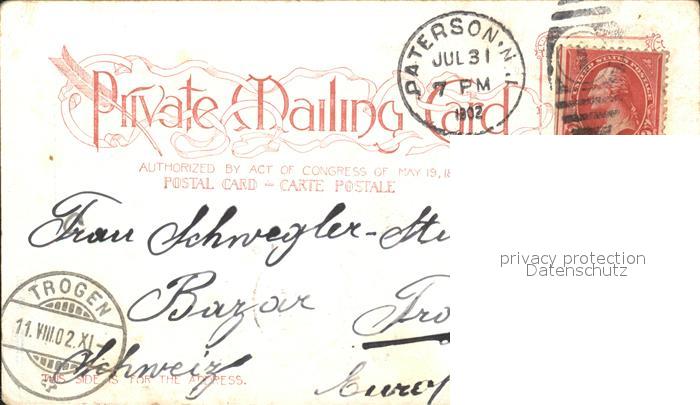 PATERSON, N.J.
JUL 31
7 PM
1902
Private Mailing Card
AUTHORIZED BY ACT OF CONGRESS OF MAY 19, 18
POSTAL CARD – CARTE POSTALE
UNITED STATES POSTAGE
Frau Schwegler-Stu
privacy protection
Datenschutz
TROGEN
11.VIII.02.XI
Bazar Tro
Schweiz
THIS SIDE IS FOR THE ADDRESS.